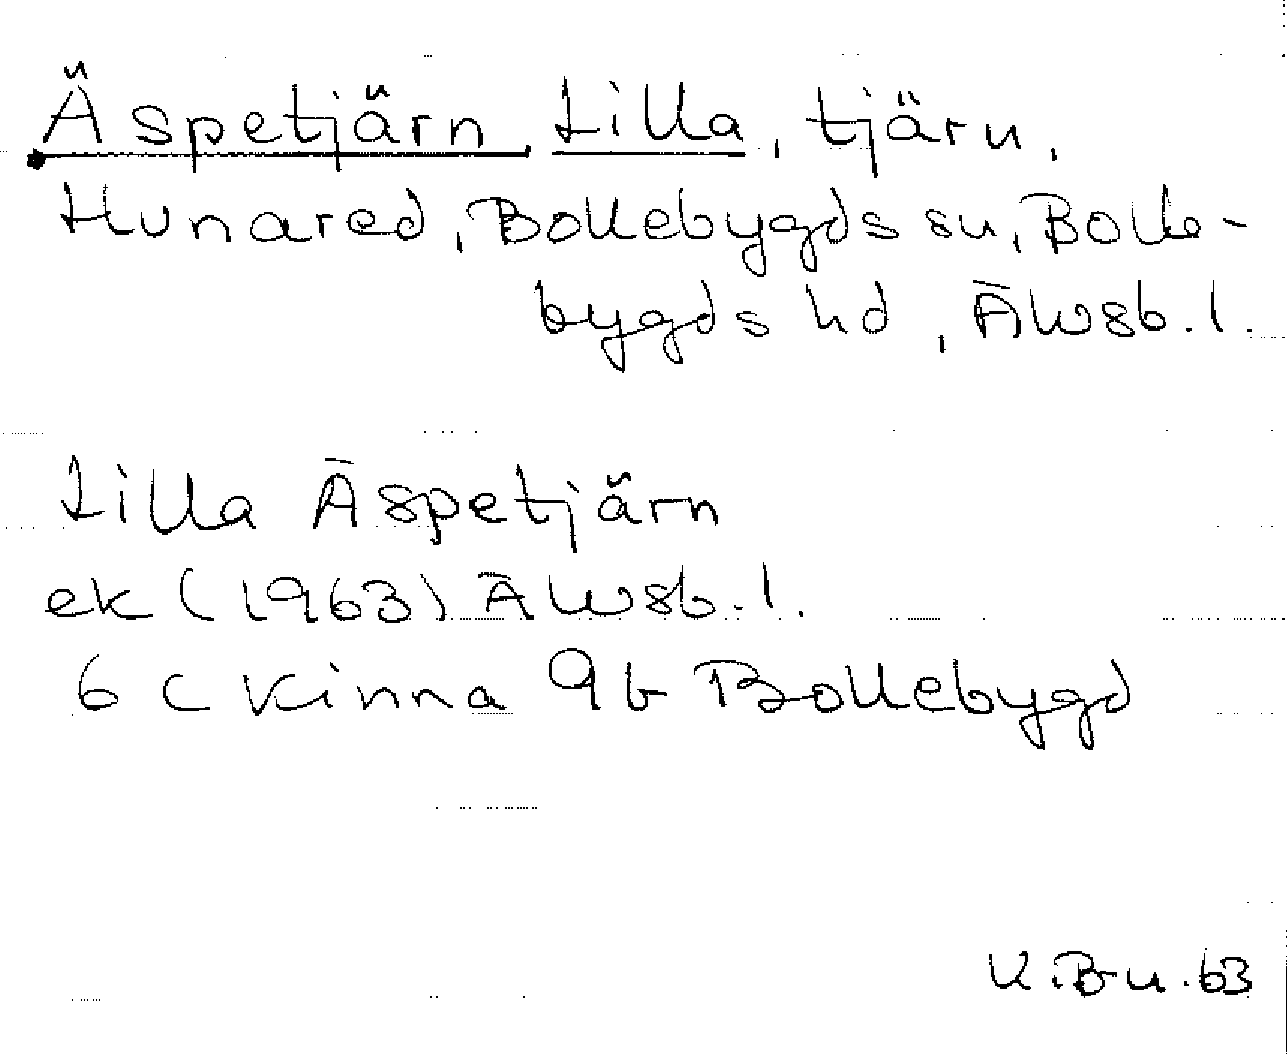 Äspetjärn, Lilla, tjärn,
Hunared, Bollebygds sn, Bolle-
bygds hd, Älvsb. l.
Lilla Äspetjärn
ek (1963) Älvsb. l.
6 C Kinna 9 b Bollebygd
63